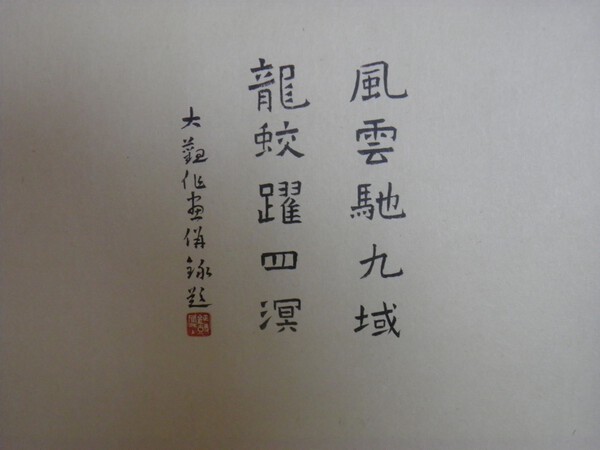 風雲馳九域
龍蛟躍四溟
大觀作畫併錄題